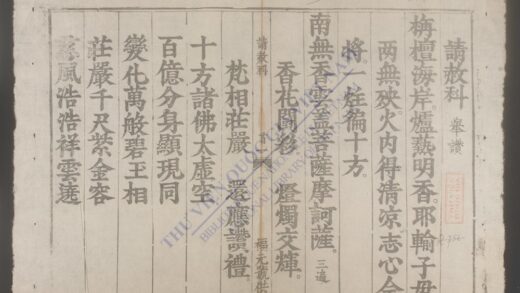 請赦科 舉讚
栴檀海岸。爐爇明香。耶輸子母
两無殃。火内得清凉志心今
將。一炷徧十方。
南無香雲蓋菩薩摩訶薩。三遍
香花鬪彩 燈燭交輝。
請赦科 福元
梵相莊嚴 還應讚禮。
十方諸佛太虚空
百億分身顯現同
變化萬般碧玉相
莊嚴千尺紫金容
風浩浩祥雲遶
THƯ VIỆN QUỐC GIA VIỆT NAM